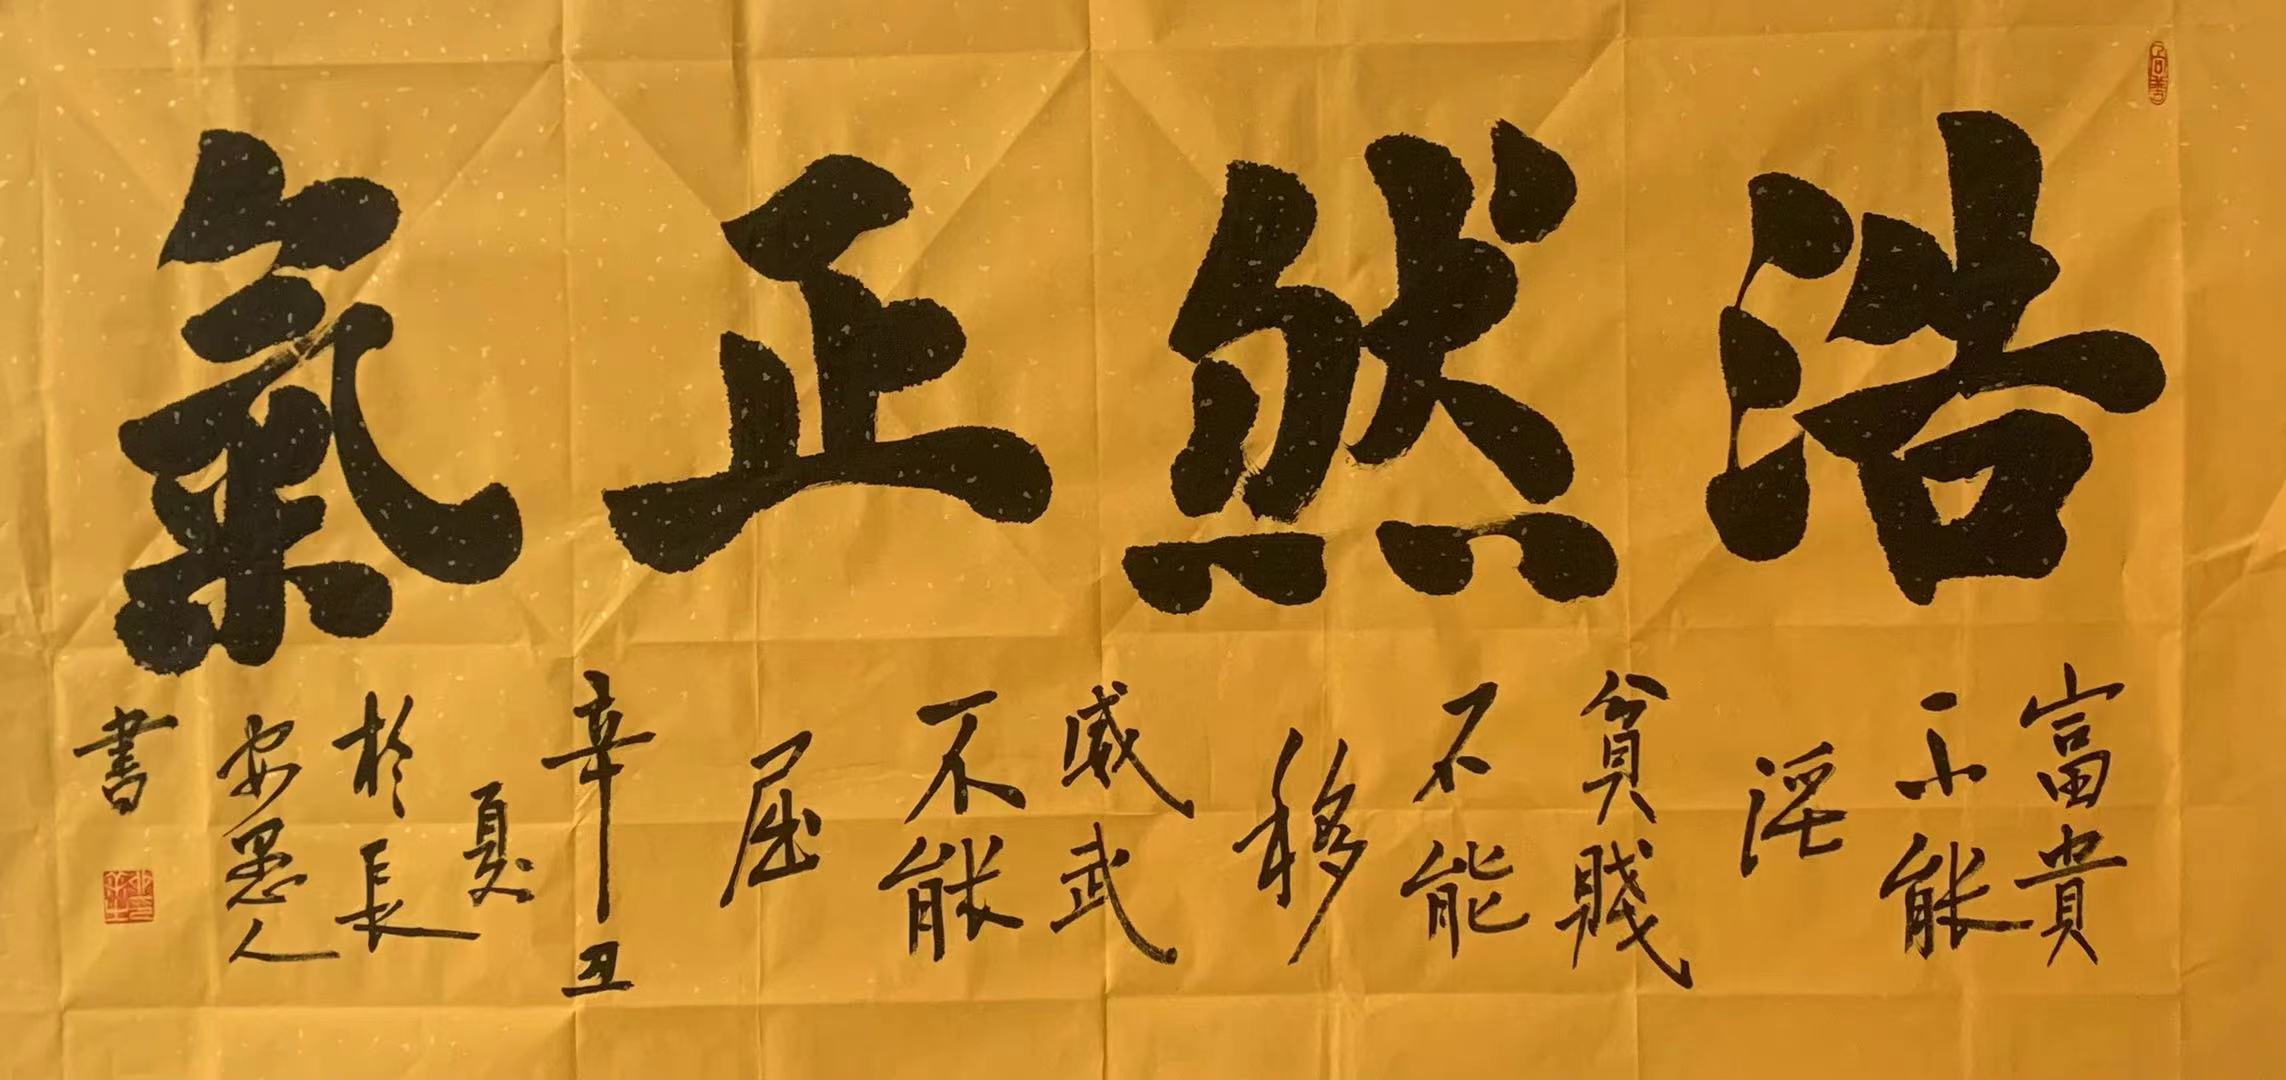 浩然正氣
富貴
不能
淫
貧賤
不能
移
威武
不能
屈
辛丑
夏
於長
安愚人
書